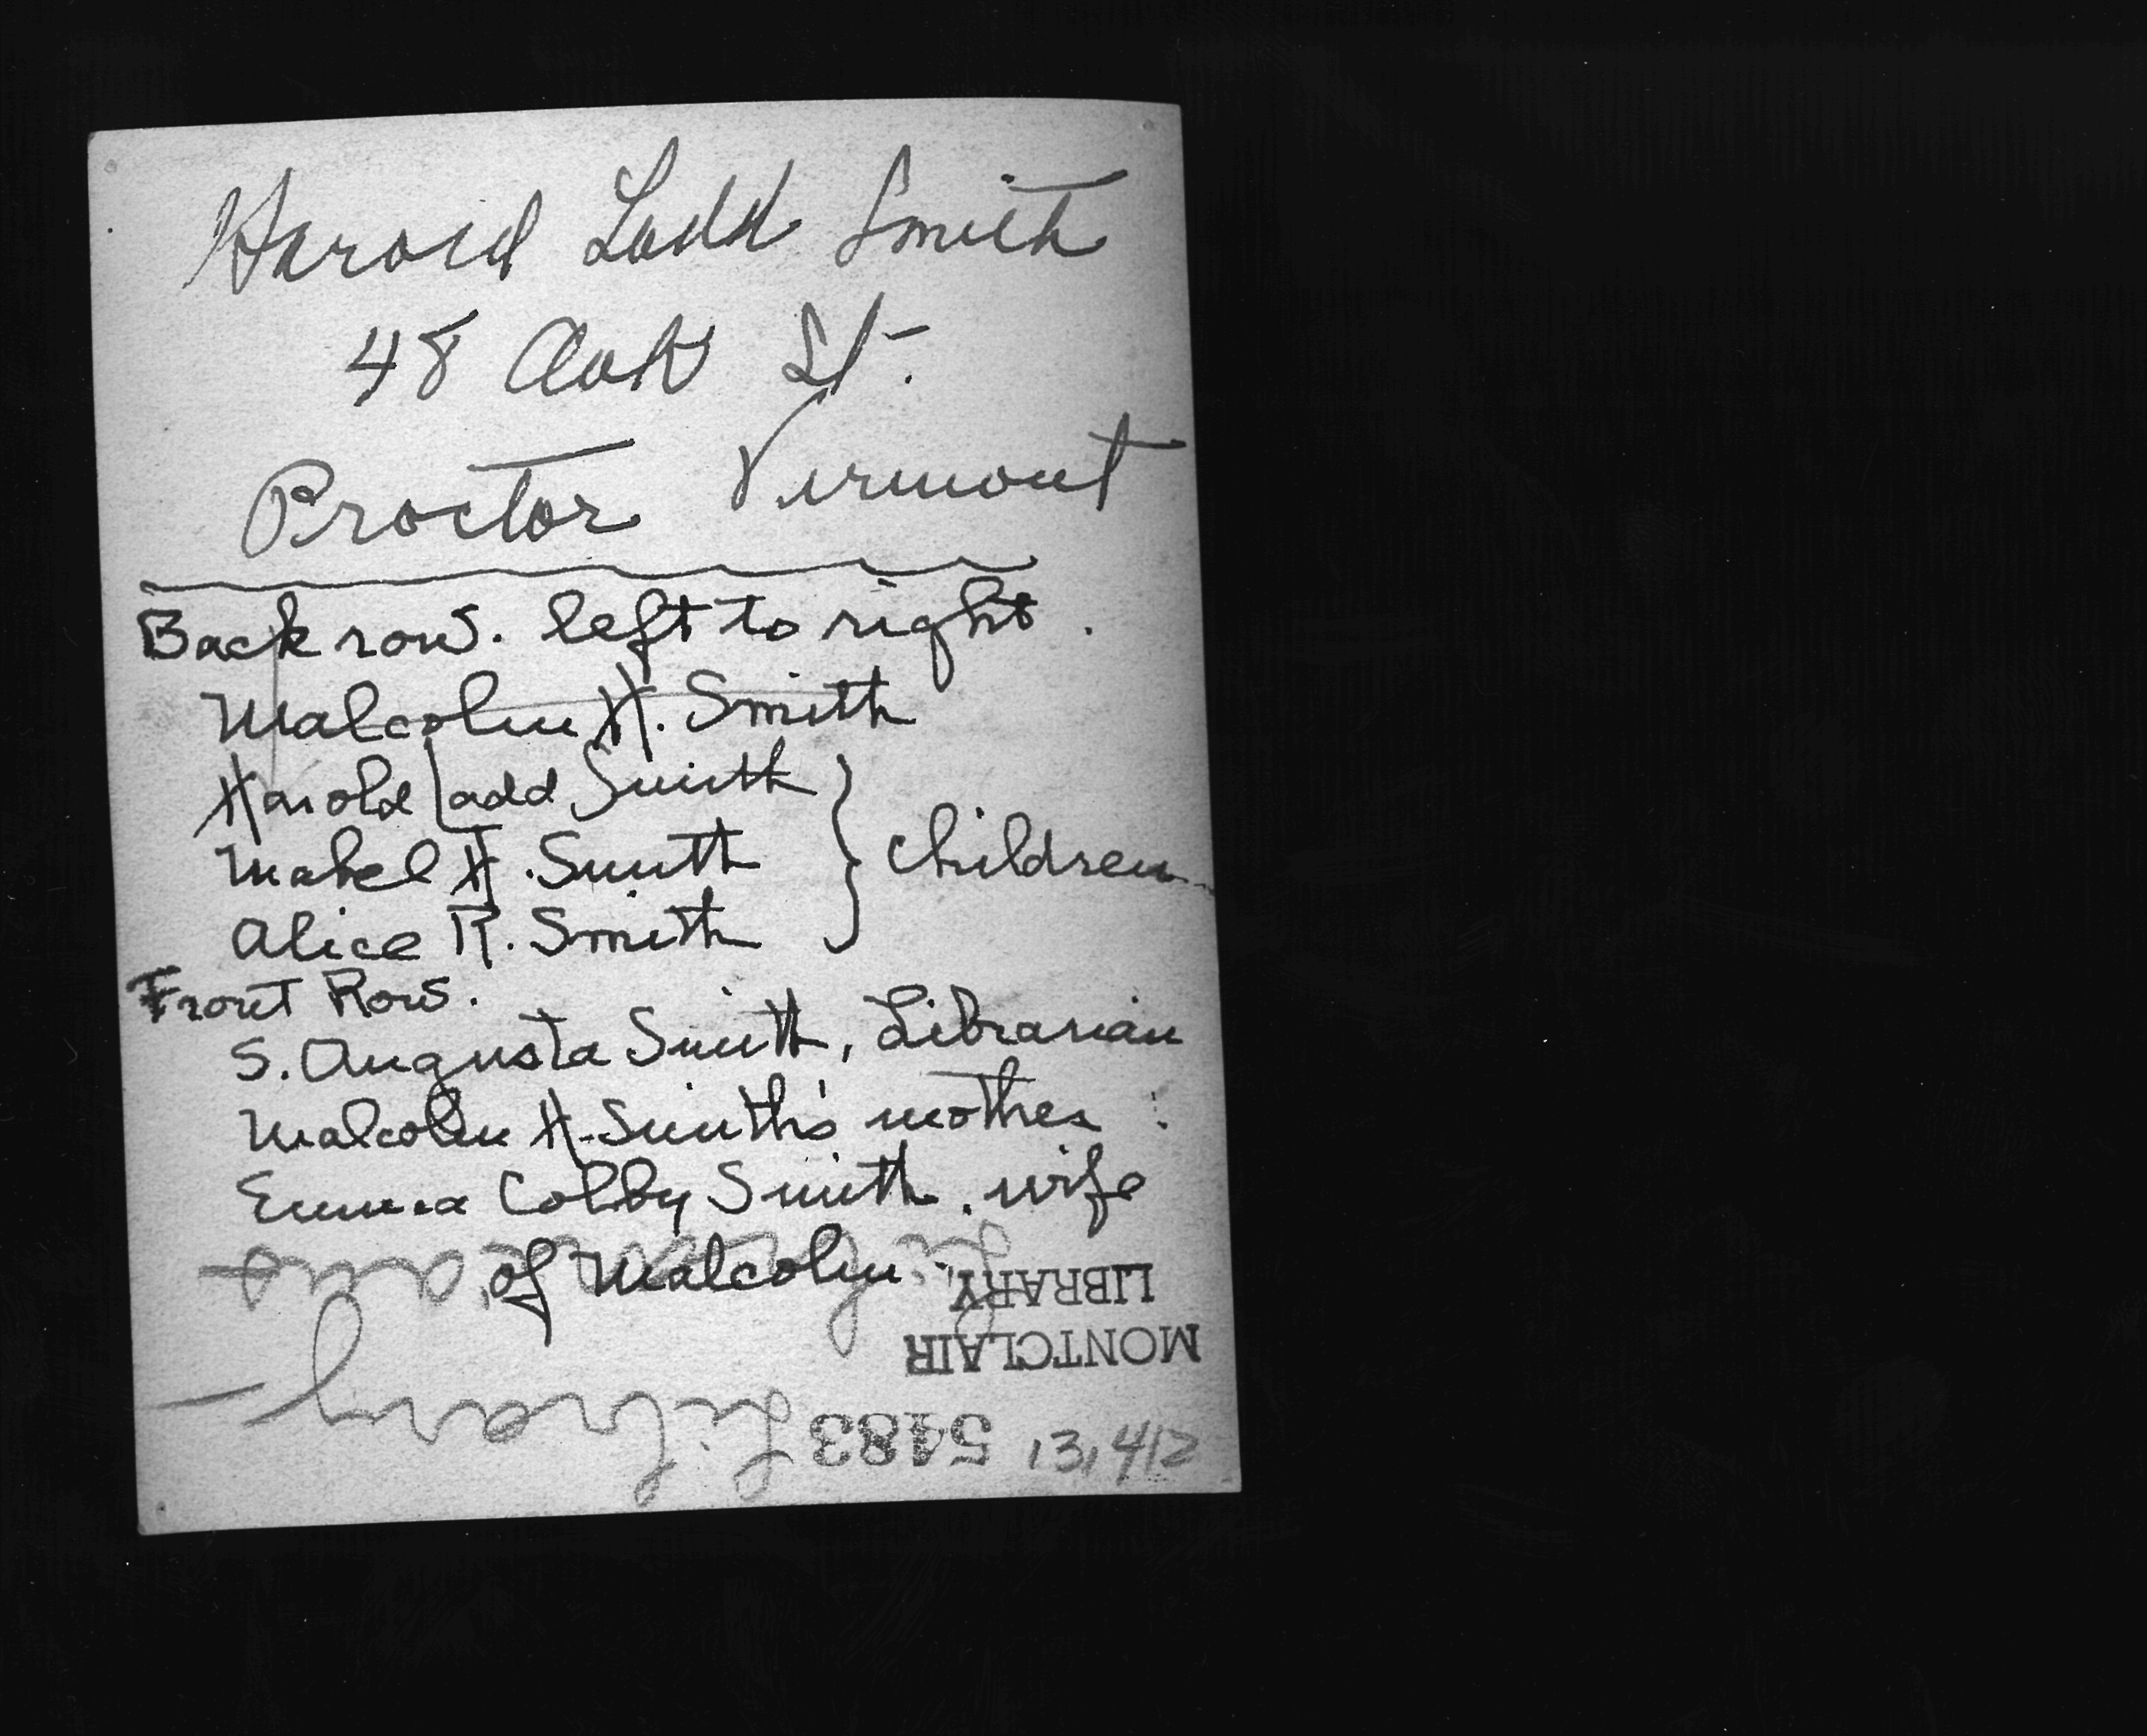 Harold Ladd Smith
48 Oak St.
Proctor Vermont
Back row. left to right.
Malcolm H. Smith
Harold Ladd Smith
Mabel H. Smith } children
Alice R. Smith
Front Row.
S. Augusta Smith, Librarian
Malcolm H. Smith's mother.
Emma Colby Smith. wife
of Malcolm.
LIBRARY,
MONTCLAIR
Library
5483 13,412